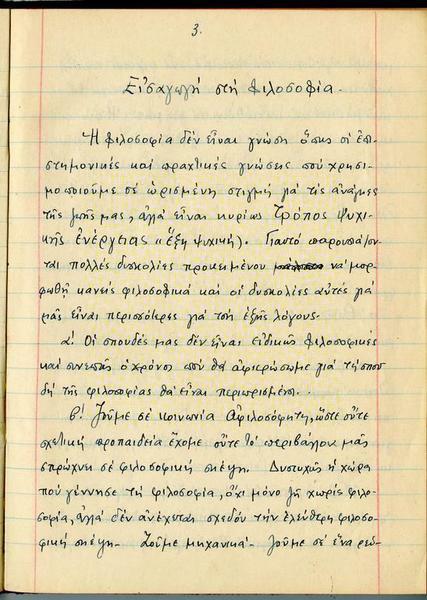 3.
Εἰσαγωγή στή Φιλοσοφία.
Ἡ φιλοσοφία δέν εἶναι γνώση ὅπως οἱ ἐπι-
στημονικές καί πρακτικές γνώσεις πού χρησι-
μοποιοῦμε σέ ὡρισμένη στιγμή γιά τίς ἀνάγκες
τῆς ζωῆς μας, ἀλλά εἶναι κυρίως τρόπος ψυχι-
κῆς ἐνέργειας (ἕξη ψυχική). Γιαυτό παρουσιάζον-
ται πολλές δυσκολίες προκειμένου νά μορ-
φωθῆ κανείς φιλοσοφικά καί οἱ δυσκολίες αὐτές γιά
μᾶς εἶναι περισσότερες γιά τούς ἑξῆς λόγους.
α'. Οἱ σπουδές μας δέν εἶναι εἰδικῶς φιλοσοφικές
καί συνεπῶς ὁ χρόνος πού θά ἀφιερώσωμε γιά τή σπου
δή τῆς φιλοσοφίας θά εἶναι περιωρισμένος.
β'. Ζοῦμε σέ κοινωνία ἀφιλοσόφητη, ὥστε οὔτε
σχετική προπαιδεία ἔχομε οὔτε τό περιβάλλον μᾶς
σπρώχνει σέ φιλοσοφική σκέψη. Δυστυχῶς ἡ χώρα
πού γέννησε τή φιλοσοφία, ὄχι μόνο ζῆ χωρίς φιλο-
σοφία, ἀλλά δέν ἀνέχεται σχεδόν τήν ἐλεύθερη φιλοσο-
φική σκέψη. Ζοῦμε μηχανικά. Ζοῦμε σέ ἕνα ρεῦ-